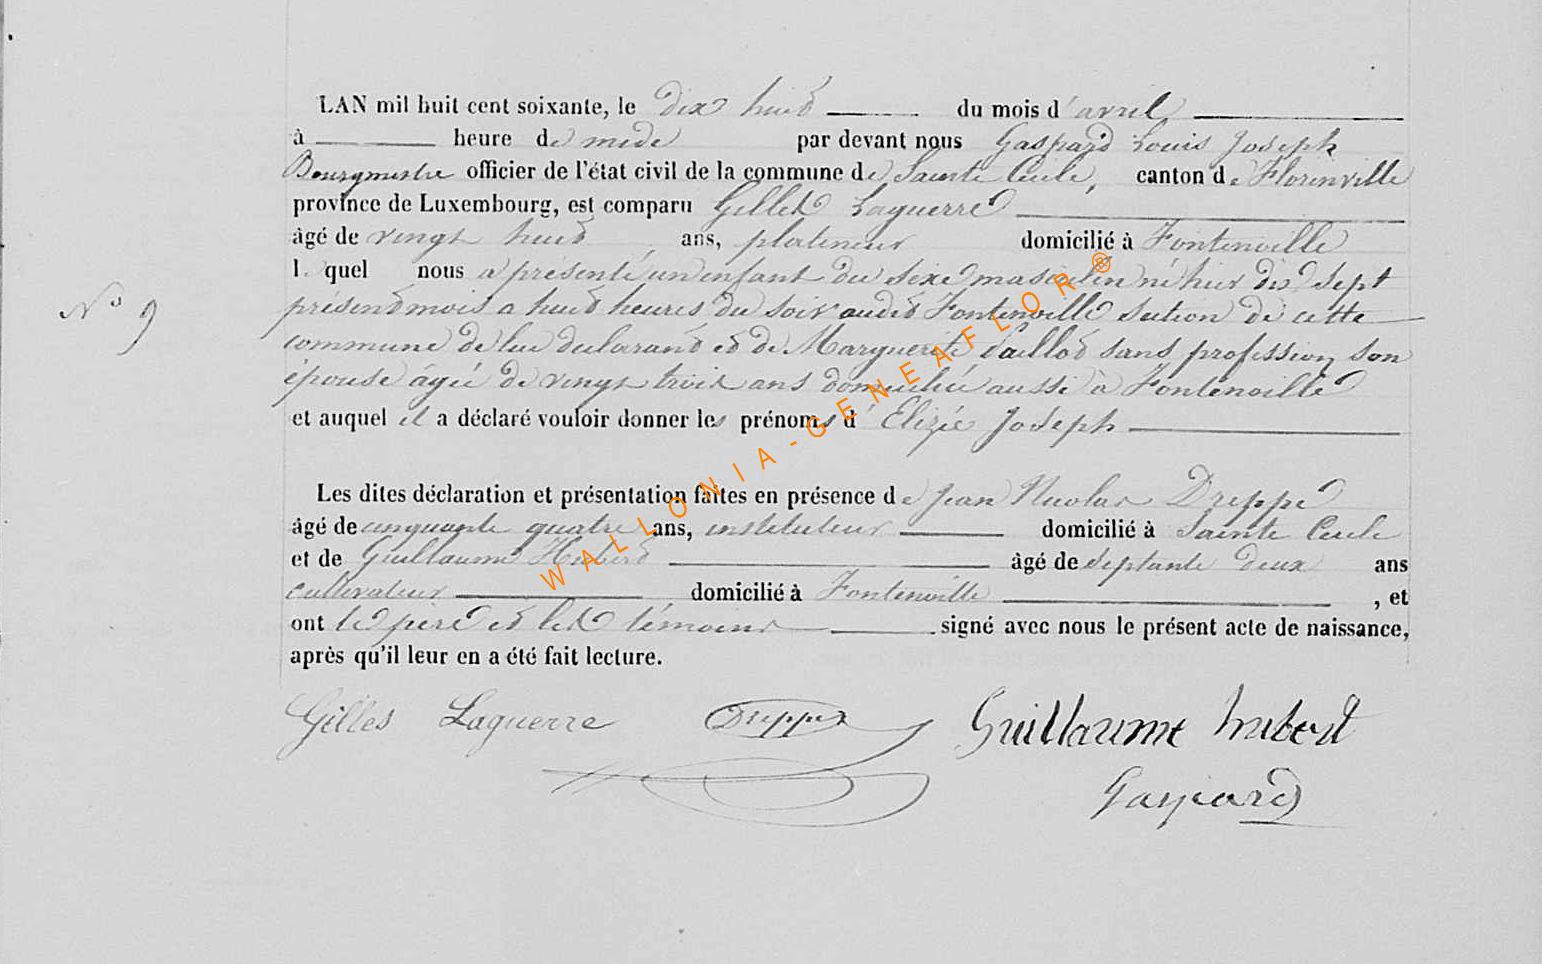 LAN mil huit cent soixante, le dix huit du mois d'avril
à heure de midi par devant nous Gaspard Louis Joseph
Bourgmestre officier de l'état civil de la commune de Sainte Cécile, canton de Florenville
province de Luxembourg, est comparu Gilles Laguerre
âgé de vingt huit ans, domicilié à Fontenoille
lequel nous a présenté un enfant du sexe masculin né hier dix sept
présent mois a huit heures du soir audit Fontenoille section de cette
N° 9
commune de lui déclarant et de Marguerite sans profession son
épouse âgée de vingt trois ans domiciliée aussi à Fontenoille
et auquel il a déclaré vouloir donner les prénoms d'Elizée Joseph
Les dites déclaration et présentation faites en présence de Jean Nicolas Dreppe
âgé de cinquante quatre ans, instituteur domicilié à Sainte Cécile
et de Guillaume Hubert âgé de septante deux ans
cultivateur domicilié à Fontenoille , et
ont le père et les témoins signé avec nous le présent acte de naissance,
après qu'il leur en a été fait lecture.
Gilles Laguerre Dreppe Guillaume hubert
Gaspard
WALLONIA-GENEAFLOR®